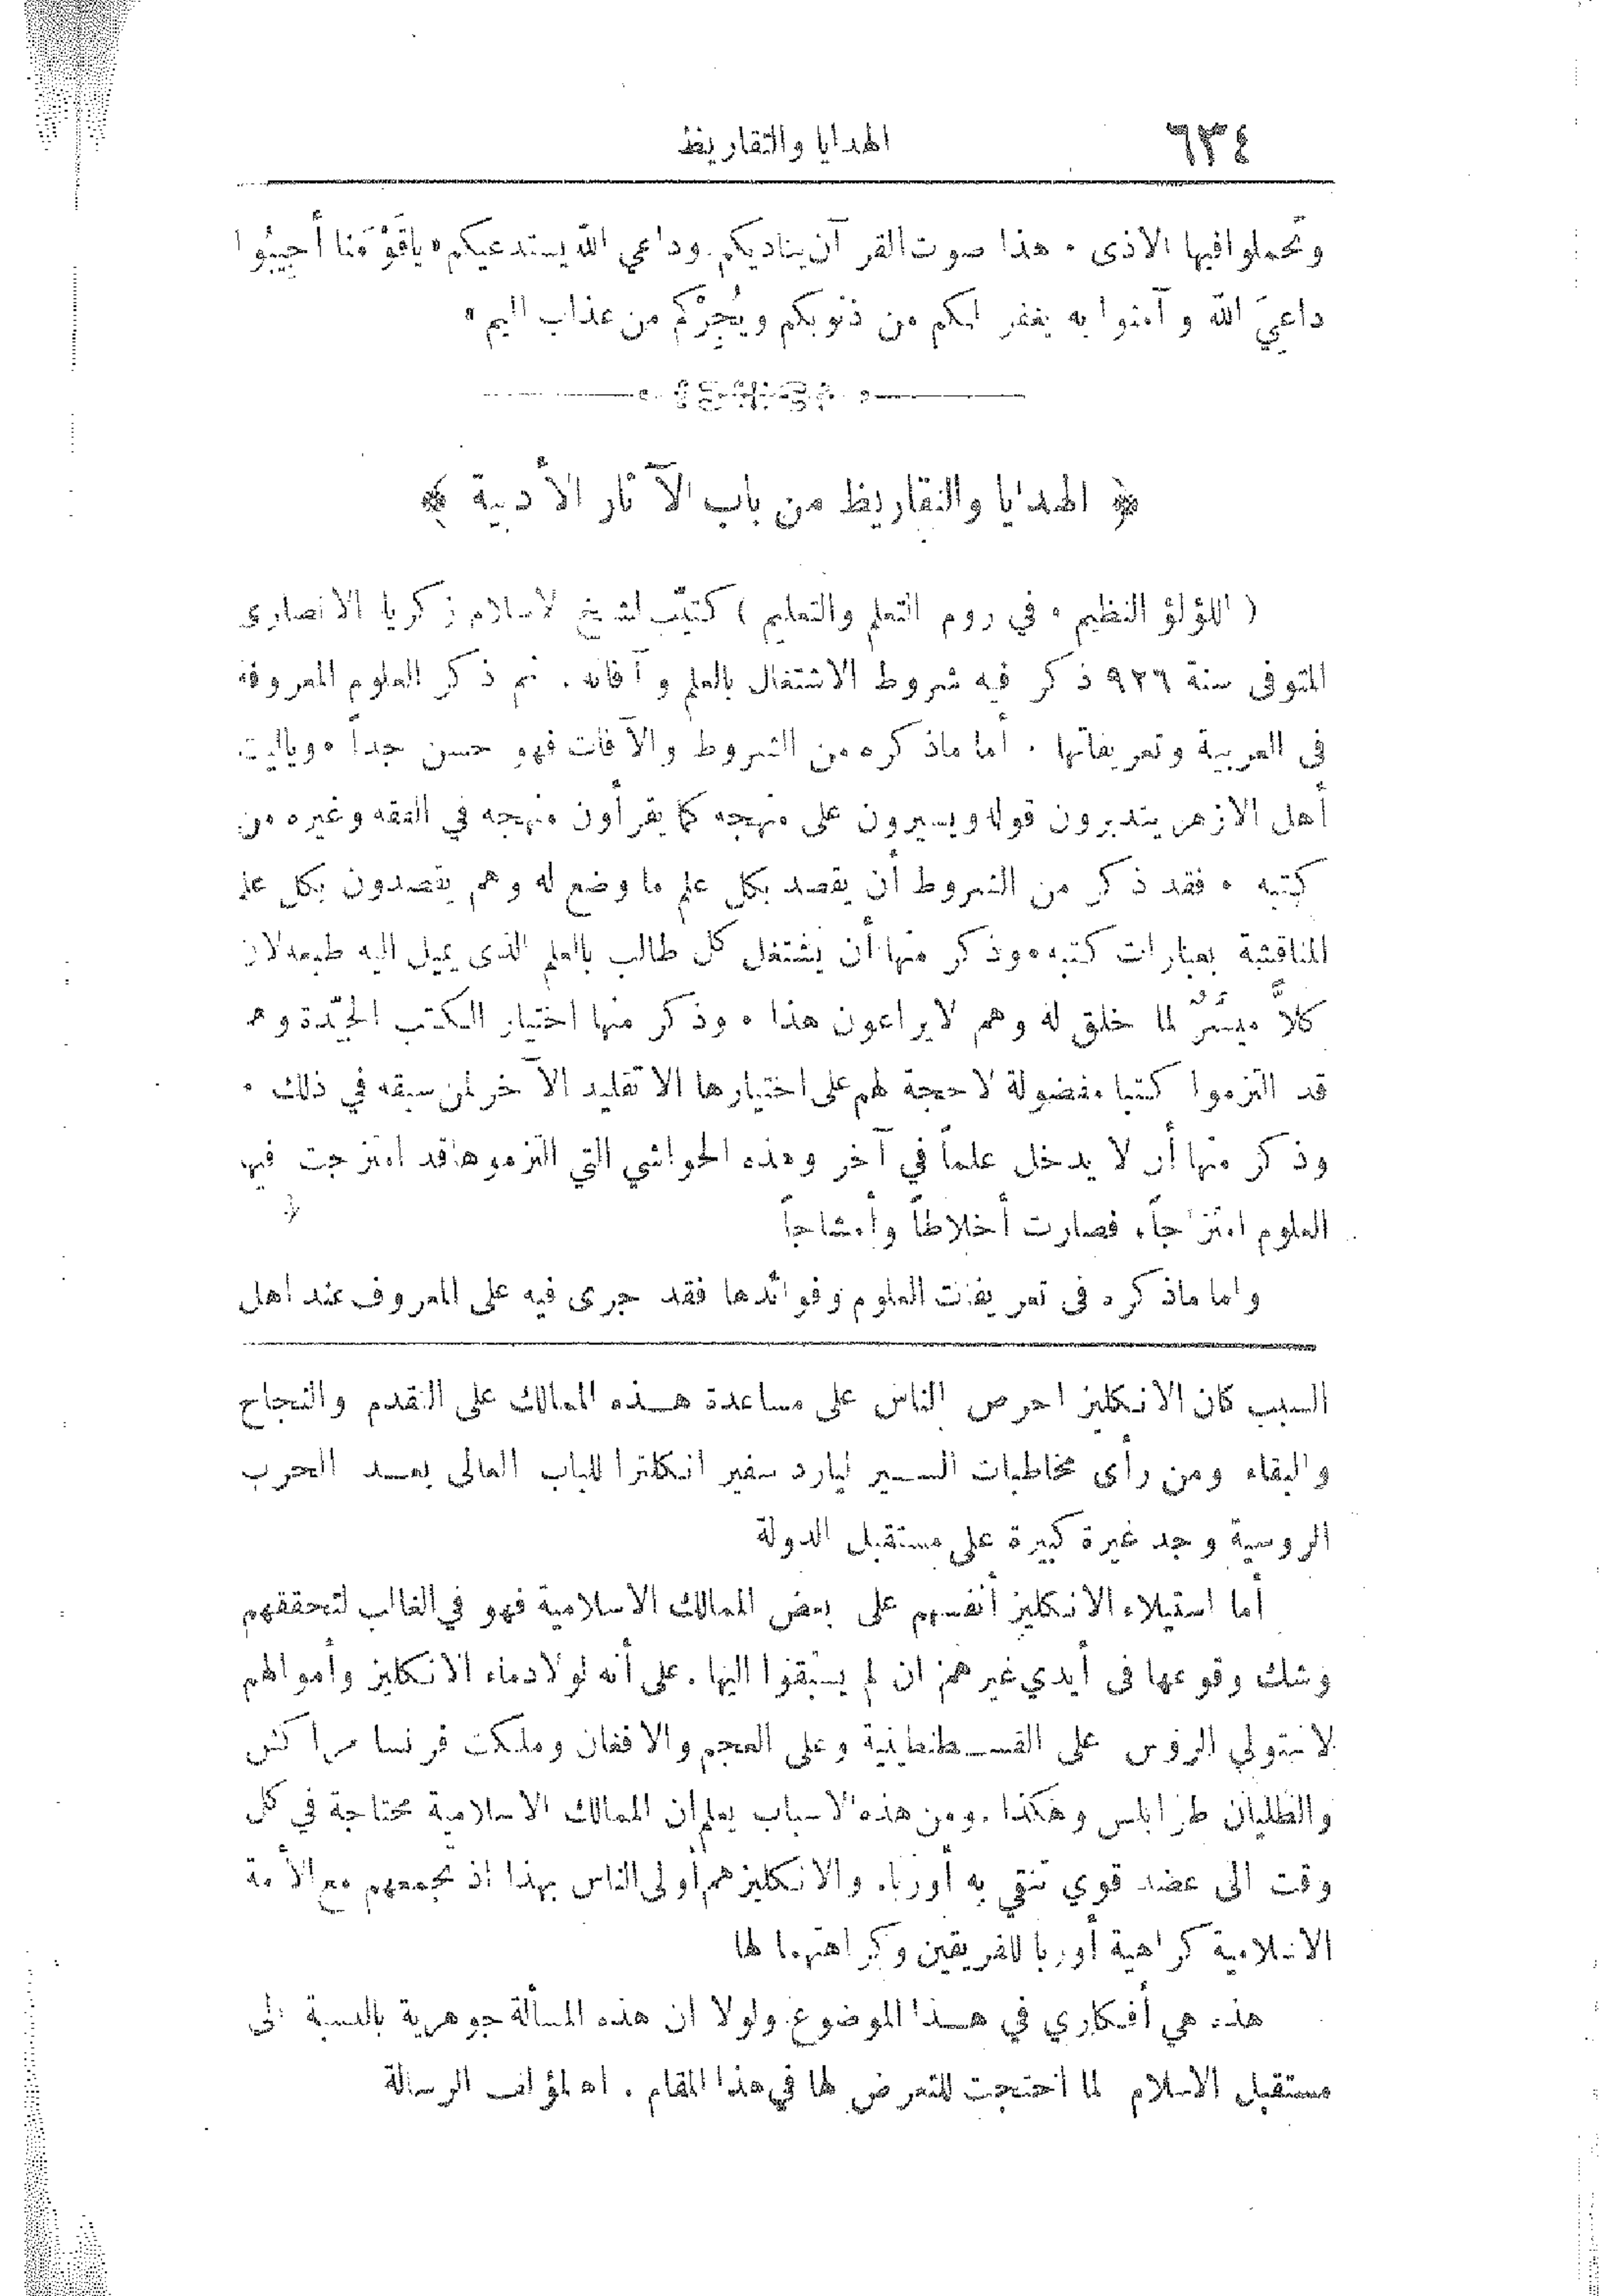 ٦٣٤ الهدايا والتقاريظ
وتحملوا فيها الاذى ٠ هذا صوت القرآن يناديكم. وداعي الله يستدعيكم « ياقَوْمَنا أَجيبُوا
داعيَ الله وآمنوا به يغفر لكم من ذنوبكم ويُجِرْكم من عذاب اليم »
﴿ الهدايا والتقاريظ من باب الآثار الأدبية ﴾
( اللؤلؤ النظيم ٠ في روم التعلم والتعليم ) كتيّب لشيخ الاسلام زكريا الانصارى
المتوفى سنة ٩٢٦ ذكر فيه شروط الاشتغال بالعلم وآفاته . ثم ذكر العلوم المعروفة
فى العربية وتعريفاتها . أما ماذكره من الشروط والآفات فهو حسن جداً ٠ وياليت
أهل الازهر يتدبرون قوله ويسيرون على منهجه كما يقرأون منهجه في الفقه وغيره من
كتبه ٠ فقد ذكر من الشروط أن يقصد بكل علم ما وضع له وهم يقصدون بكل علم
المناقشة بعبارات كتبه ٠ وذكر منها أن يشتغل كل طالب بالعلم الذى يميل اليه طبعه لان
كلاًّ ميسَّرٌ لما خلق له وهم لايراعون هذا ٠ وذكر منها اختيار الكتب الجيّدة وهم
قد التزموا كتبا مفضولة لاحجة لهم على اختيارها الا تقليد الآخر لمن سبقه في ذلك ٠
وذكر منها أن لا يدخل علماً في آخر وهذه الحواشي التي التزموها قد امتزجت فيها
العلوم امتزاجاً، فصارت أخلاطاً وأمشاجاً
واما ماذكره فى تعريفات العلوم وفوائدها فقد جرى فيه على المعروف عند اهل
السبب كان الانكليز احرص الناس على مساعدة هذه الممالك على التقدم والنجاح
والبقاء ومن رأى مخاطبات السير ليارد سفير انكلترا للباب العالى بعد الحرب
الروسية وجد غيرة كبيرة على مستقبل الدولة
أما استيلاء الانكليز أنفسهم على بعض الممالك الاسلامية فهو في الغالب لتحققهم
وشك وقوعها فى أيدي غيرهم ان لم يسبقوا اليها . على أنه لولا دماء الانكليز وأموالهم
لاستولي الروس على القسطنطينية وعلى العجم والافغان وملكت فرنسا مراكش
والطليان طرابلس وهكذا . ومن هذه الاسباب يعلم ان الممالك الاسلامية محتاجة في كل
وقت الى عضد قوي تتقي به أوربا. والانكليز هم أولى الناس بهذا اذ تجمعهم مع الأمة
الاسلامية كراهية أوربا للفريقين وكراهتهما لها
هذه هي أفكاري في هذا الموضوع ولولا ان هذه المسألة جوهرية بالنسبة الى
مستقبل الاسلام لما احتجت للتعرض لها في هذا المقام . اه لمؤلف الرسالة